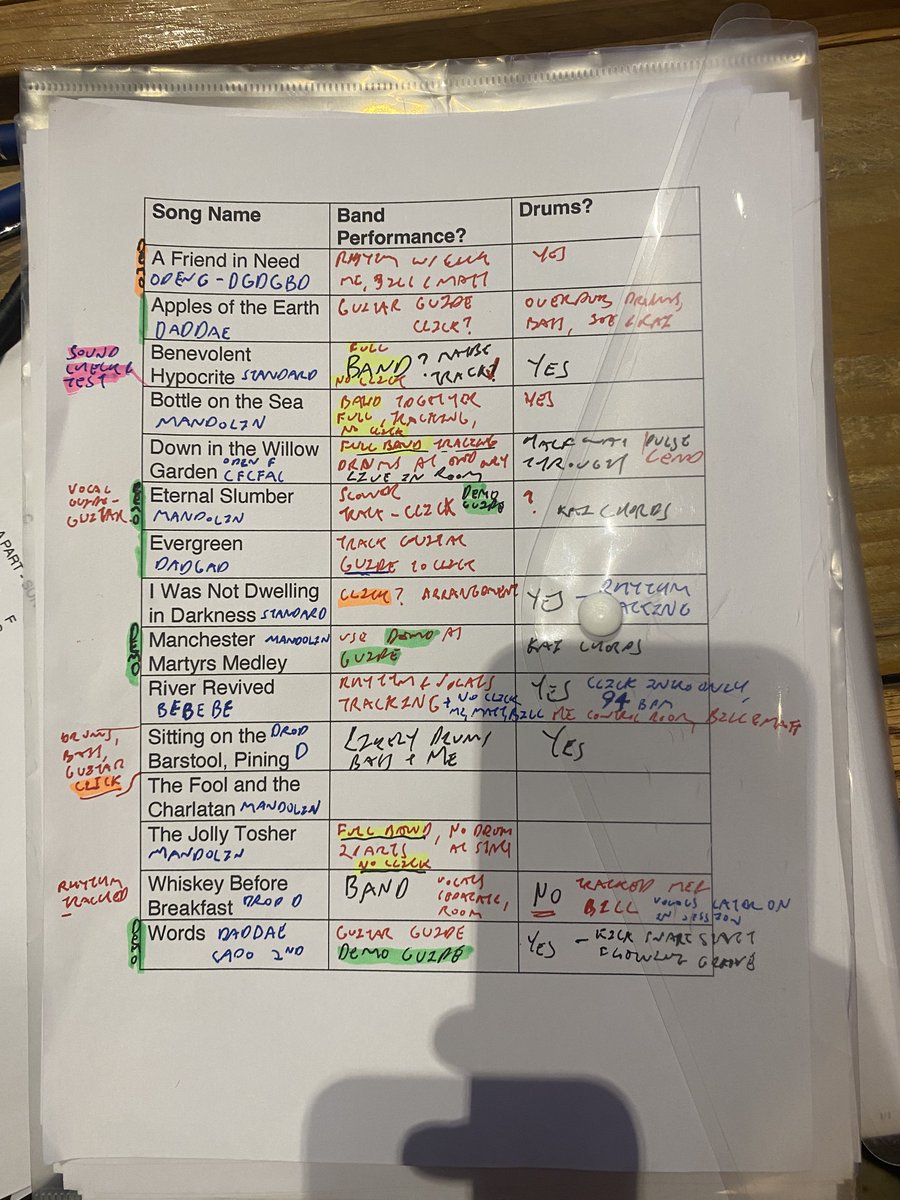 Song Name
Band Performance?
Drums?
DEMO
A Friend in Need
OPENG - DGDGBD
RHYTHM W/ CLICK
ME, BILL & MATT
YES
Apples of the Earth
DADDAE
GUITAR GUIDE
CLICK?
OVERDUB DRUMS,
BASS,
SOUND
CHECK &
TEST
Benevolent
Hypocrite STANDARD
FULL
BAND? MAYBE
NO CLICK TRACK!
YES
Bottle on the Sea
MANDOLIN
BAND TOGETHER
FULL, TRACKING,
NO CLICK
YES
Down in the Willow
Garden OPEN F
CFCFAC
FULL BAND TRACKING
DRUMS AT
LIVE IN ROOM
PULSE
THROUGH
VOCAL
GUIDE-
GUITAR
DEMO
Eternal Slumber
MANDOLIN
SLOWER
TRACK - CLICK DEMO
GUIDE
? KAI CHORDS
Evergreen
DADGAD
TRACK GUITAR
GUIDE TO CLICK
I Was Not Dwelling
in Darkness STANDARD
CLICK? ARRANGEMENT
YES - RHYTHM
TRACKING
DEMO
Manchester MANDOLIN
Martyrs Medley
USE DEMO AS
GUIDE
KAI CHORDS
River Revived
BEBEBE
RHYTHM & VOCALS
TRACKING + NO CLICK
ME, MATT, BILL
YES CLICK INTRO ONLY,
94 BPM
ME CONTROL ROOM, BILL & MATT
DRUMS,
BASS,
GUITAR
CLICK
Sitting on the DROP
Barstool, Pining D
LIKELY DRUMS
BASS + ME
YES
The Fool and the
Charlatan MANDOLIN
The Jolly Tosher
MANDOLIN
FULL BAND, NO DRUM
2 PARTS
NO CLICK
RHYTHM
TRACKED
Whiskey Before
Breakfast DROP D
BAND VOCALS
SEPARATE,
ROOM
NO TRACKED ME &
BILL VOCALS LATER ON
IN SESSION
DEMO
Words DADDAE
CAPO 2ND
GUITAR GUIDE
DEMO GUIDE
YES - KICK SNARE
GROOVE